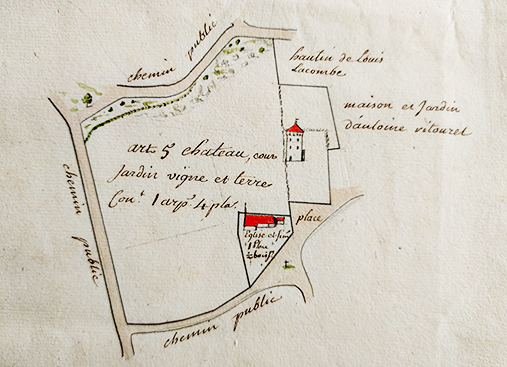 chemin public
hautin de Louis
Lacombe
maison et Jardin
d'antoine vitouret
art. 5 chateau, cour
Jardin vigne et terre
Con.t 1 arp. 4 pla.
chemin public
place
Eglise et
1 Plan
chemin public